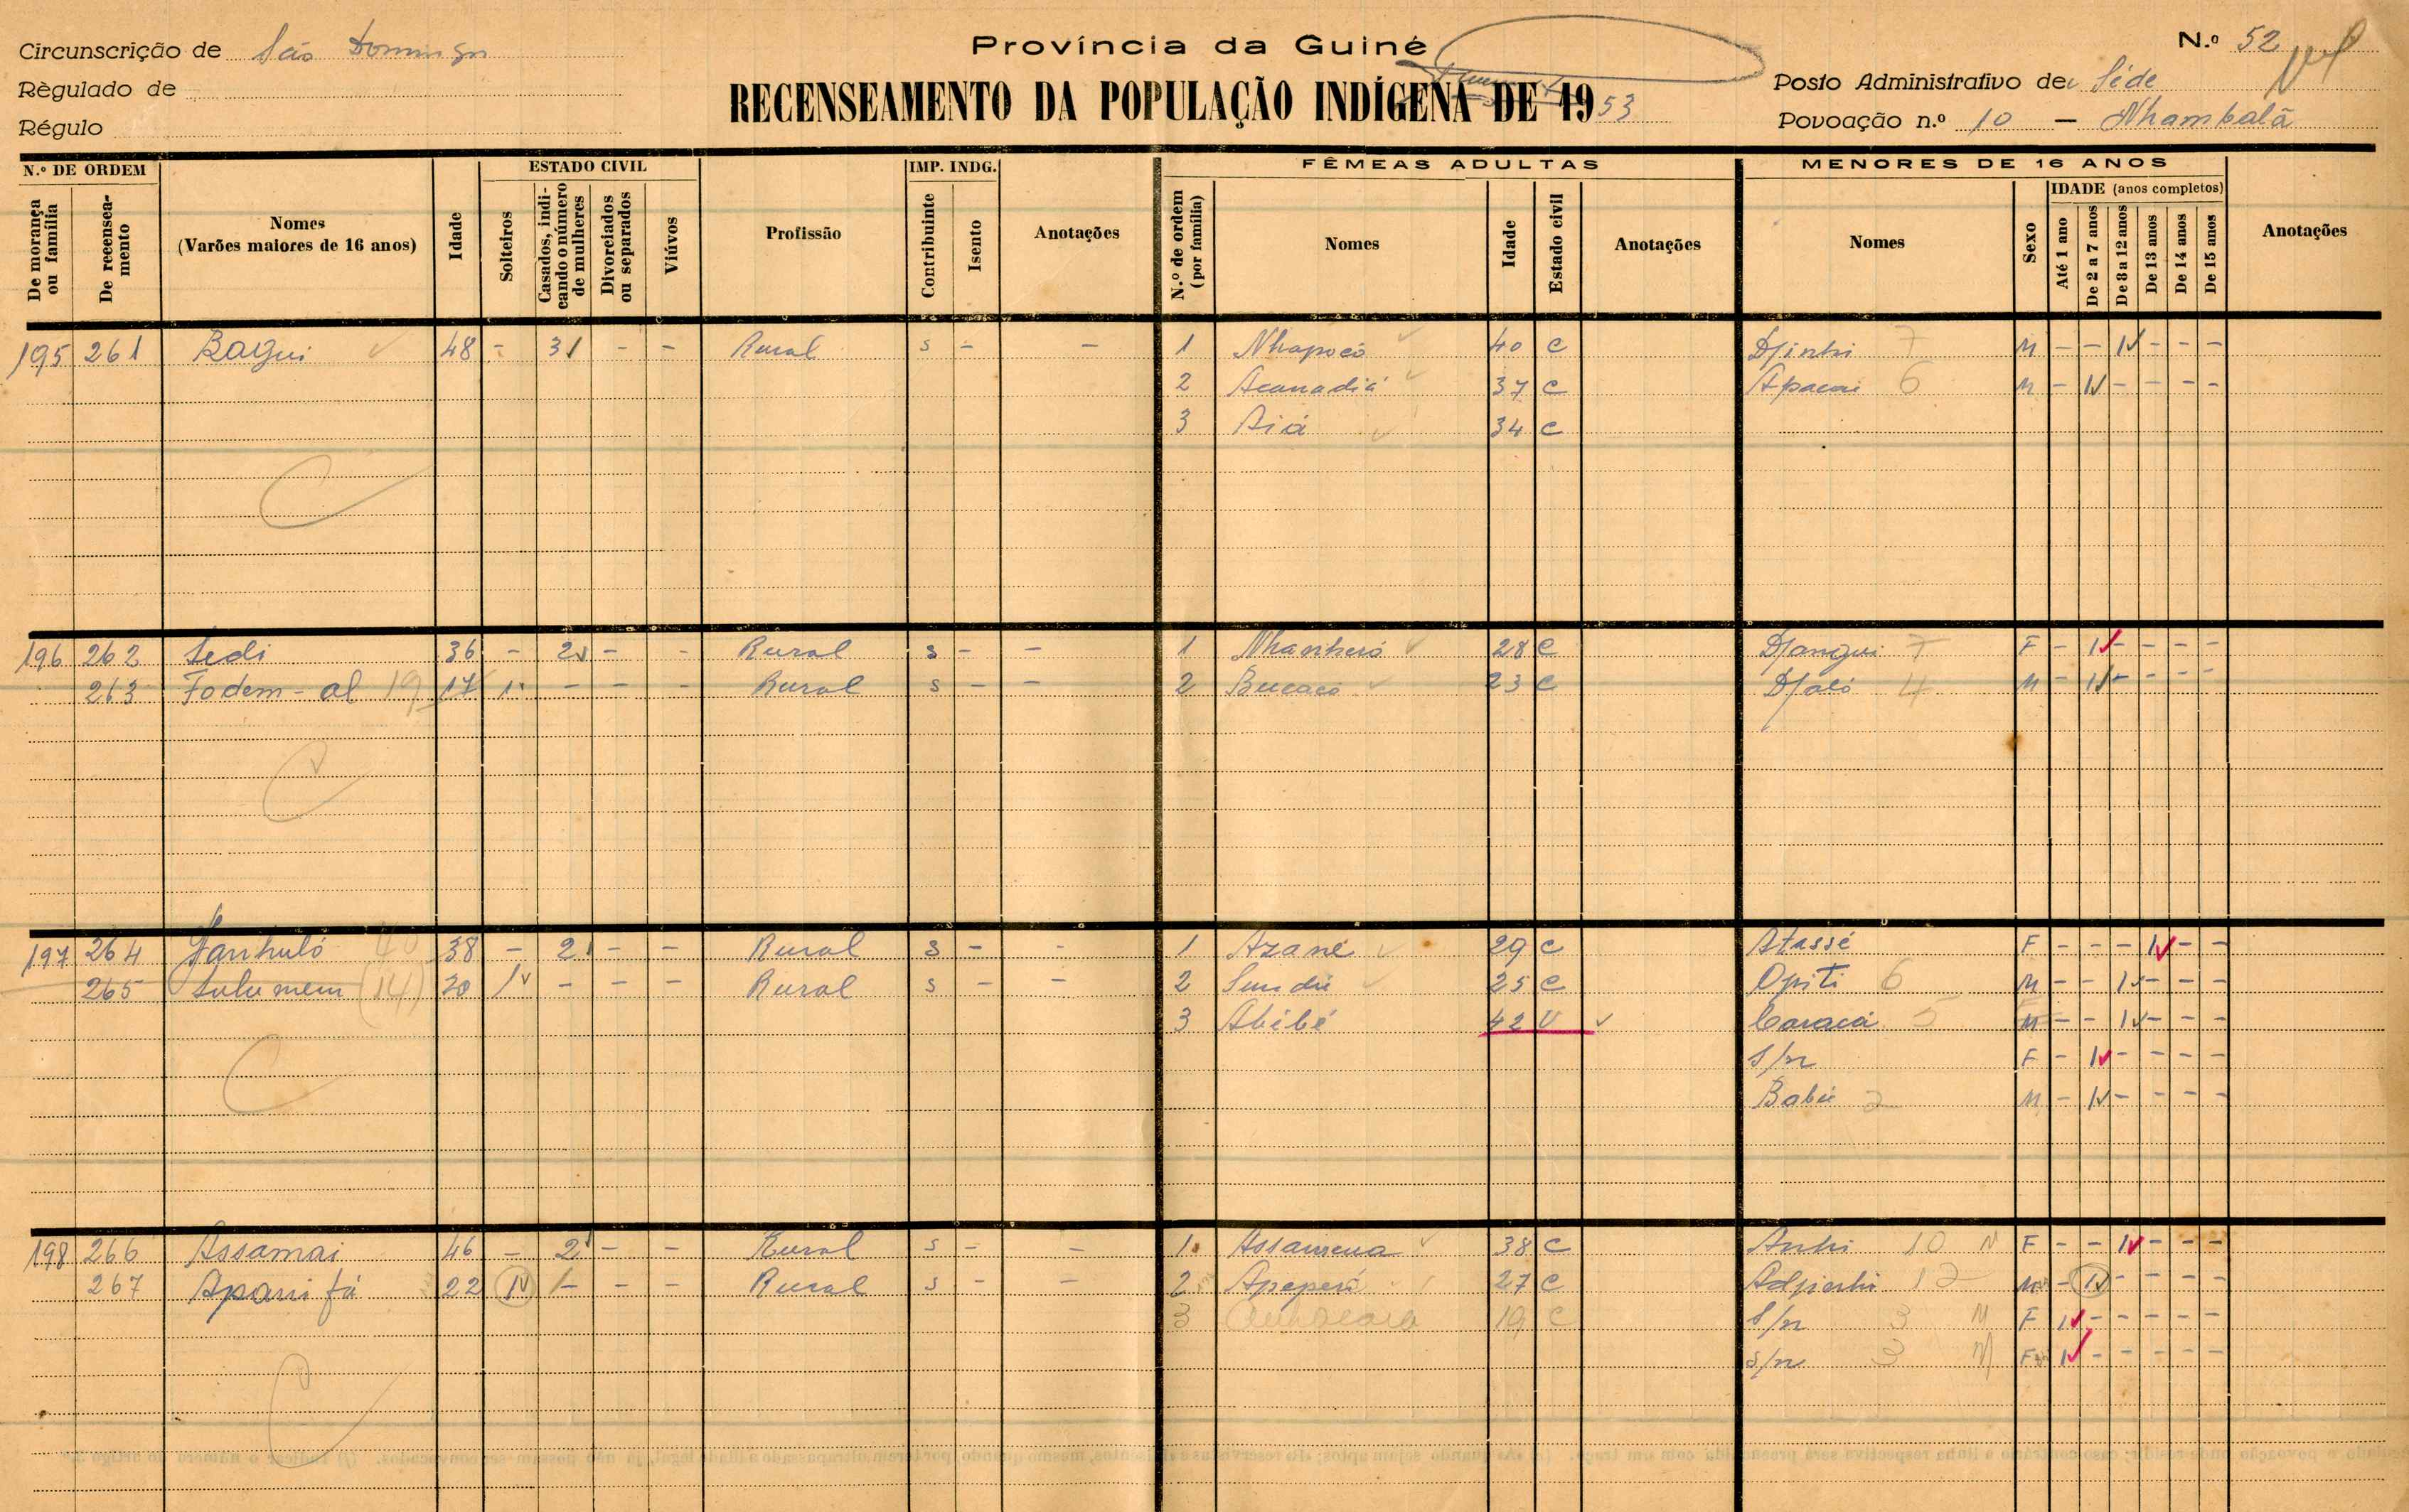 Circunscrição de São Domingos
Província da Guiné
N.º 52
Règulado de
Posto Administrativo de Séde
RECENSEAMENTO DA POPULAÇÃO INDÍGENA DE 1953
Régulo
Povoação n.º 10 — Nhambalã
N.º DE ORDEM
ESTADO CIVIL
IMP. INDG.
FÊMEAS ADULTAS
MENORES DE 16 ANOS
De morança ou família
De recensea-mento
Nomes (Varões maiores de 16 anos)
Idade
Solteiros
Casados, indi-cando o número de mulheres
Divorciados ou separados
Viúvos
Profissão
Contribuinte
Isento
Anotações
N.º de ordem (por família)
Nomes
Idade
Estado civil
Anotações
Nomes
Sexo
IDADE (anos completos)
Até 1 ano
De 2 a 7 anos
De 8 a 12 anos
De 13 anos
De 14 anos
De 15 anos
Anotações
195 261 Bagui 48 - 3 - - Rural s - - 1 Nhapocó 40 C Djinhi 7 M - - 1 - - -
2 Acanadiá 37 C Apacai 6 M - 1 - - - -
3 Aiá 34 C
196 262 Sedi 36 - 2 - - Rural s - - 1 Nhanheró 28 C Djangui 7 F - 1 - - - -
263 Fodem-al 19 17 1 - - - Rural s - - 2 Bucacó 23 C Djaló 4 M - 1 - - - -
197 264 Nanhuló 40 38 - 2 - - Rural s - - 1 Azané 29 C Atassé F - - - 1 - -
265 Sulumem (14) 20 1 - - - Rural s - - 2 Sundú 25 C Opiti 6 M - - 1 - - -
3 Abibé 42 V Caracá 5 M - - 1 - - -
S/n F - 1 - - - -
Babú 2 M - 1 - - - -
198 266 Assamai 46 - 2 - - Rural s - - 1 Assamena 38 C Anhi 10 N F - - 1 - - -
267 Apani fá 22 1 1 - - Rural s - - 2 Apeperá 27 C Adjenhi 12 M - 1 - - - -
3 19 C S/n 3 M F 1 - - - - -
S/n 3 M F 1 - - - - -